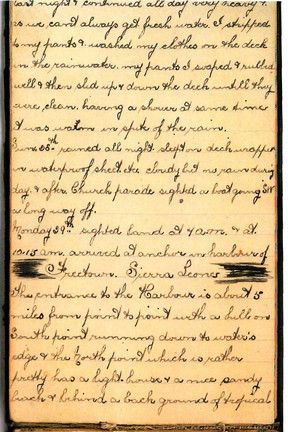 last night & continued all day very heavy &
as we can't always get fresh water. I stripped
to my pants & washed my clothes on the deck
in the rainwater. my pants I soaped & rubbed
well & then slid up & down the deck untill they
were clean. having a shower at same time
it was warm in spite of the rain.
Sun. 28th rained all night. slept on deck wrapped
in waterproof sheet etc cloudy but no rain during
day. & after Church parade sighted a boat going SW
a long way off.
Monday 29th sighted land at 4 a.m. & at
10.15 am. arrived at anchor in harbour of
Freetown. Sierra Leone
the entrance to the Harbour is about 5
miles from point to point with a hill on
South point running down to water's
edge & the North point which is rather
pretty has a light-house & a nice sandy
beach & behind a back ground of tropical